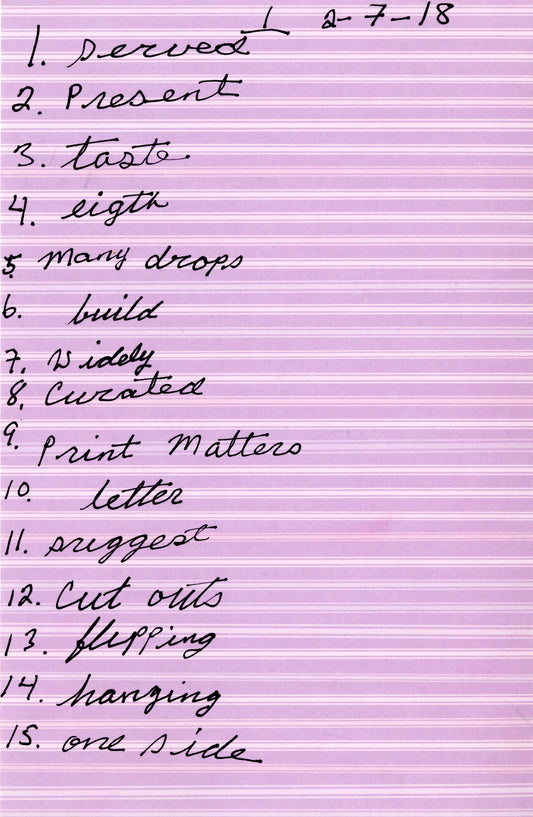 1 2-7-18
1. served
2. Present
3. taste
4. eigth
5. Many drops
6. build
7. Widely
8. Curated
9. Print Matters
10. letter
11. suggest
12. Cut outs
13. flipping
14. hanging
15. one side